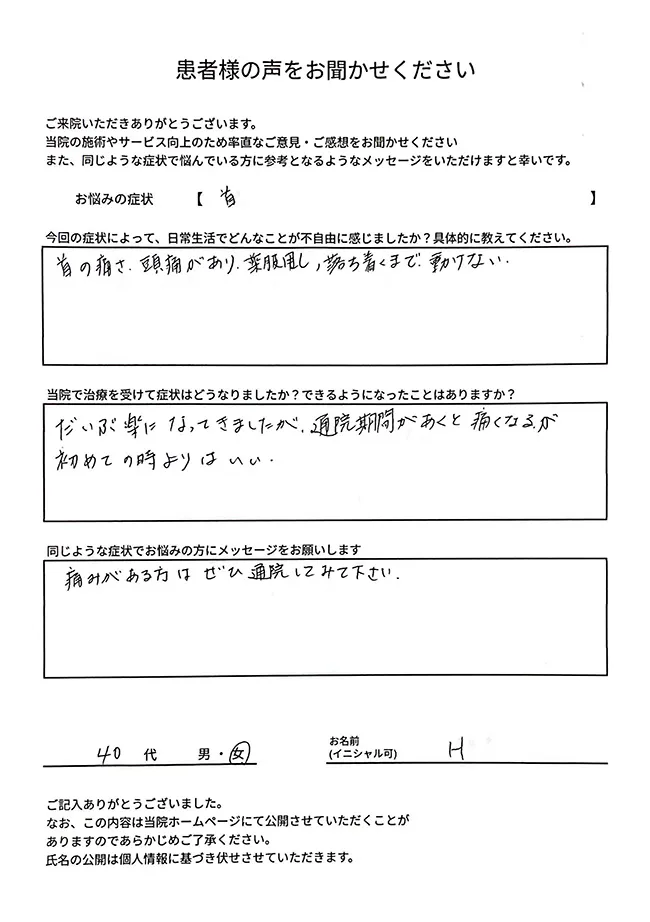 患者様の声をお聞かせください
ご来院いただきありがとうございます。
当院の施術やサービス向上のため率直なご意見・ご感想をお聞かせください
また、同じような症状で悩んでいる方に参考となるようなメッセージをいただけますと幸いです。
お悩みの症状 【 首 】
今回の症状によって、日常生活でどんなことが不自由に感じましたか?具体的に教えてください。
首の痛さ、頭痛があり、薬服用し、落ち着くまで、動けない。
当院で治療を受けて症状はどうなりましたか?できるようになったことはありますか?
だいぶ楽になってきましたが、通院期間があくと痛くなるが
初めての時よりはいい。
同じような症状でお悩みの方にメッセージをお願いします
痛みがある方はぜひ通院してみて下さい。
40 代 男・女 お名前 H
(イニシャル可)
ご記入ありがとうございました。
なお、この内容は当院ホームページにて公開させていただくことが
ありますのであらかじめご了承ください。
氏名の公開は個人情報に基づき伏せさせていただきます。